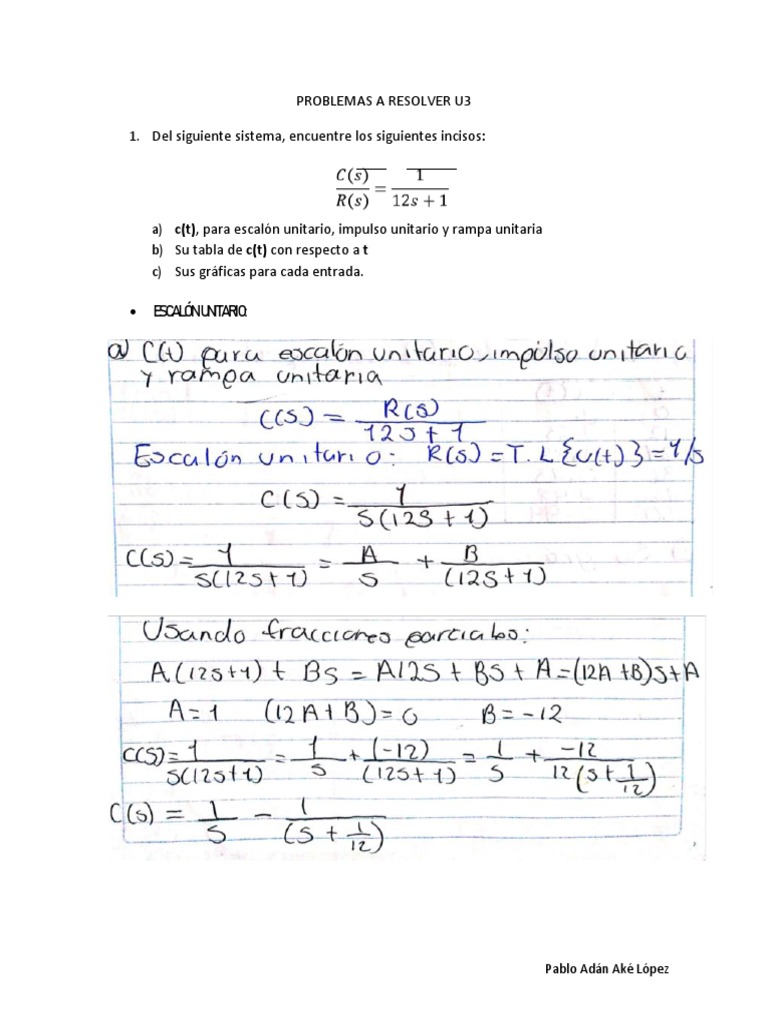 PROBLEMAS A RESOLVER U3
1. Del siguiente sistema, encuentre los siguientes incisos:
C(s)/R(s) = 1/(12s + 1)
a) c(t), para escalón unitario, impulso unitario y rampa unitaria
b) Su tabla de c(t) con respecto a t
c) Sus gráficas para cada entrada.
• ESCALÓN UNITARIO:
a) C(t) para escalón unitario, impulso unitario
y rampa unitaria
C(S) = R(S)/(12S + 1)
Escalón unitario: R(S) = T.L{U(t)} = 1/s
C(S) = 1/(S(12S + 1))
C(S) = 1/(S(12S+1)) = A/S + B/(12S+1)
Usando fracciones parciales:
A(12S+1) + BS = A12S + BS + A = (12A+B)S+A
A=1 (12A+B)=0 B=-12
C(S)=1/(S(12S+1)) = 1/S + (-12)/(12S+1) = 1/S + -12/(12(S+1/12))
C(S) = 1/S - 1/(S + 1/12)
Pablo Adán Aké López